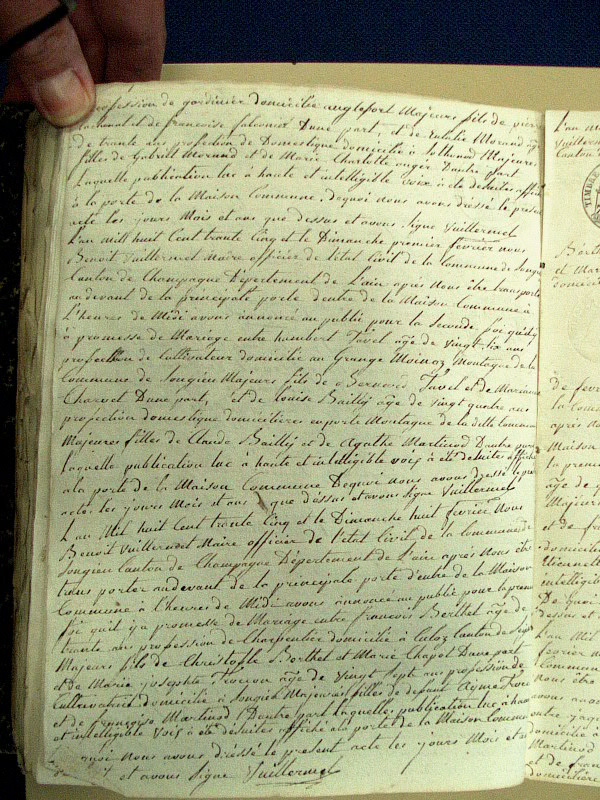 profession de jardinier domicilié anglefort Majeurs fils de pierre
et de françoise falconier Dune part, et de Eulalie Morand âgé
de trante ans profession de Domestique domicilié à Lothonod Majeures
filles de Gabriell Morand et de Marie Charlotte ougéz Dautre part
Laquelle publication luc à haute et intelligible voix à été desuites affiché
à la porte de la Maison Commune. dequoi nous avons dressé le présent
acte les jours Mois et ans que dessus et avons Signe Vuillermet
L'an mill huit Cent trante Cinq et le Dimanche premier février nous
Benoit Vuillermet Maire officier de l'état Civil de la Commune de Songieu
Canton de Champagne Département de L'ain après nous être transporté
audevant de la principale porte dentre de la Maison Commune à
L'heures de Midi avons annoncé au public pour la Seconde foi quil y
à promesse de Mariage entre humbert Juvel âge de vingt six ans
profession de Cultivateur domicilié au Grange Moinoz Montagne de la
Commune de Songieu Majeurs fils de Bernard Juvel et de Marianne
Charvet Dune part, et de Louise Bailly âge de vingt quatre ans
profession domestique domicilières en porte Montagne de la ditte Commune
Majeures filles de Claude Bailly et de Agathe Martinod Dautre part
laquelle publication luc à haute et intelligible voix à été desuites affiché
a la porte de la Maison Commune Dequoi nous avons dressé le présent
acte les jours Mois et ans que dessus et avons Signe Vuillermet
L'an Mil huit Cent trante Cinq et le Dimanche huit fevrier Nous
Benoit Vuillermet Maire officier de l'état Civil de la Commune de
Songieu Canton de Champagne Département de L'ain après Nous être
trans porter audevant de la principale porte d'entre de la Maison
Commune à l'heures de Midi avons annoncé au public pour la premi
foi quil y a promesse de Mariage entre francois Berthet âge de
trante ans profession de Charpentier domicilié à Culoz Canton de
Majeurs fils de Christophe Berthet et Marie Chapel Dune part
et de Marie josephte âge de vingt Sept ans profession de
Cultivateur domicilié à Songieu Majeures filles de defunt Ayme
et de françoise Martinod Dautre part Laquelle publication luc à haute
et intelligible Voix à été desuites affiché a la porte de la Maison Commune
quoi Nous avons dréssé le présent acte les jours Mois et a
et avons Signe Vuillermet
L'an m
Vuillerme
Canton d
TIMBRE
Berth
et Mar
domicili
De fevri
la Comm
après no
Maison
la premi
âge de
Majeurs
et de fra
domicili
Etiennett
intelligible
De quoi
dessus et
L'an Mil
fevrier n
Commune
Nous être
avons anno
entre
domicilié à
Martinod
et de fran
domicilière